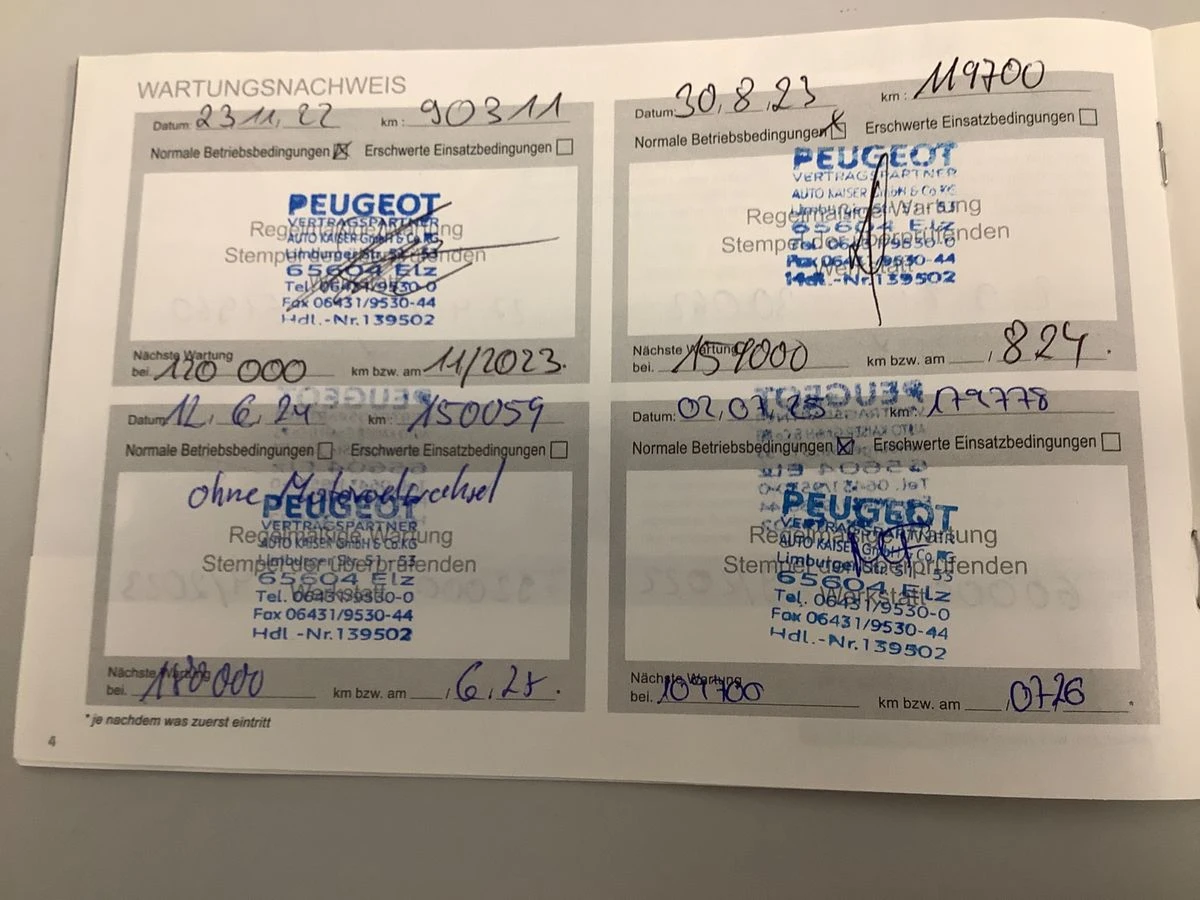 WARTUNGSNACHWEIS
Datum: 23 11, 22 km : 90311
Normale Betriebsbedingungen Erschwerte Einsatzbedingungen
PEUGEOT
VERTRAGSPARTNER
Regelmäßige Wartung
AUTO KAISER GmbH & Co.KG
Stempel der überprüfenden
Limburger Str. 51 - 53
Werkstatt
65604 Elz
Tel. 06431/9530-0
Fax 06431/9530-44
Hdl.-Nr.139502
Nächste Wartung
bei. 120 000 km bzw. am 11/2023.
Datum: 30, 8, 23 km : 119700
Normale Betriebsbedingungen Erschwerte Einsatzbedingungen
PEUGEOT
VERTRAGSPARTNER
AUTO KAISER GmbH & Co KG
Regelmäßige Wartung
Limburger Str. 51 - 53
Stempel der überprüfenden
65604 Elz
Tel. 06431/9530-0
Werkstatt
Fax 06431/9530-44
Hdl.-Nr.139502
Nächste Wartung
bei. km bzw. am / 824.
Datum: 12, 6, 24 km : 150059
Normale Betriebsbedingungen Erschwerte Einsatzbedingungen
ohne
PEUGEOT
VERTRAGSPARTNER
Regelmäßige Wartung
AUTO KAISER GmbH & Co.KG
Limburger Str. 51 - 53
Stempel der überprüfenden
65604 Elz
Werkstatt
Tel. 06431/9530-0
Fax 06431/9530-44
Hdl -Nr.139502
Nächste Wartung
bei. 180000 km bzw. am , 6, 25 .
Datum: 02, 07, 25 km: 179778
Normale Betriebsbedingungen Erschwerte Einsatzbedingungen
PEUGEOT
VERTRAGSPARTNER
Regelmäßige Wartung
AUTO KAISER GmbH & Co.KG
Limburger Str. 51 - 53
Stempel der überprüfenden
65604 Elz
Werkstatt
Tel. 06431/9530-0
Fax 06431/9530-44
Hdl.-Nr.139502
Nächste Wartung
bei. km bzw. am 0726 .
*je nachdem was zuerst eintritt
4